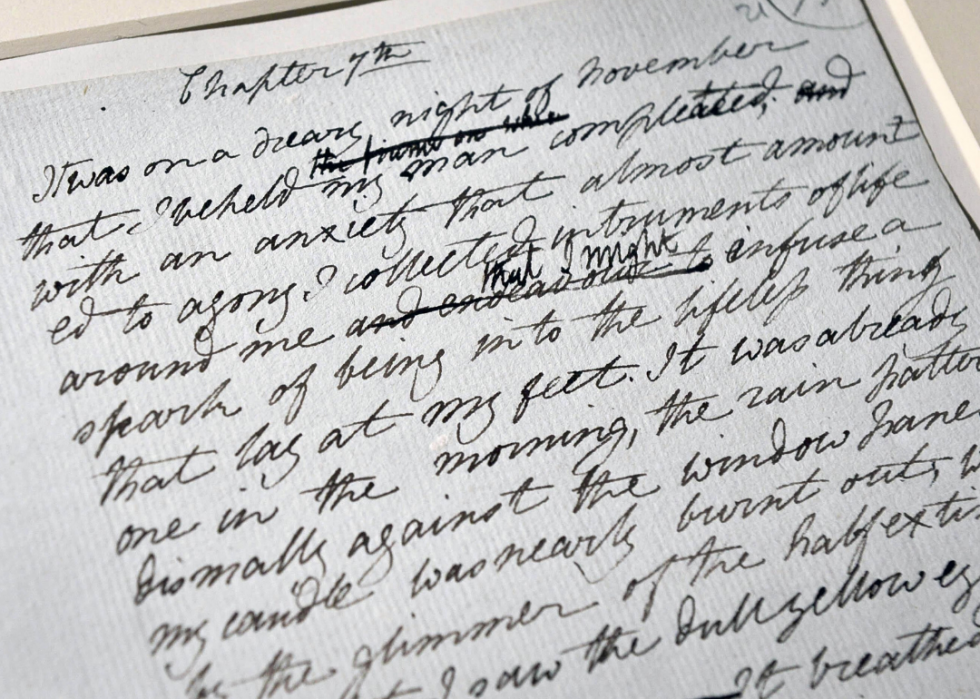 21
Chapter 7th
It was on a dreary night of November
that I beheld the frame on whic my man compleated, and
with an anxiety that almost amount
ed to agony I collected intruments of life
around me and endeavour to that I might infuse a
spark of being into the lifeless thing
that lay at my feet. It was already
one in the morning, the rain patter
dismally against the window panes
my candle was nearly burnt out,
by the glimmer of the half exti
I saw the dull yellow ey
It breathed